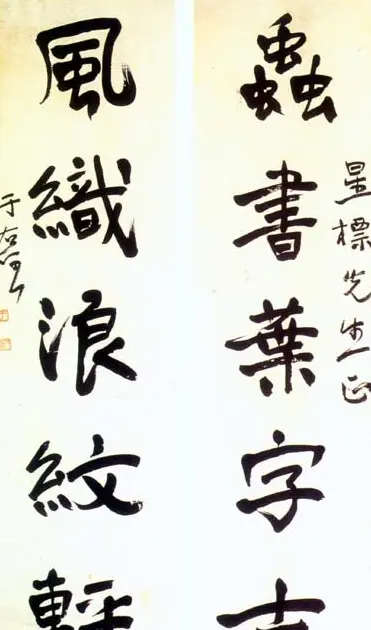 星標先生正
蟲書葉字
風織浪紋
于右任